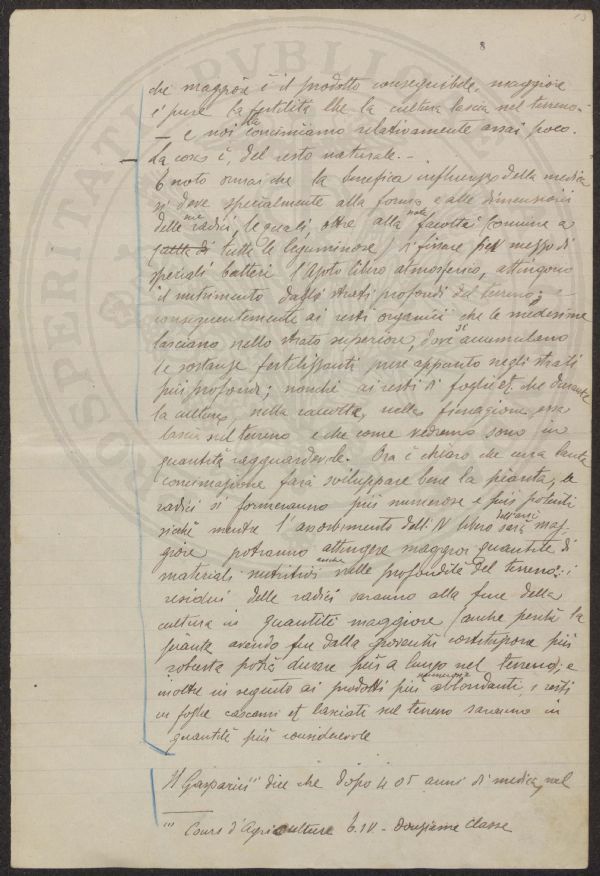 13
8
che maggiore è il prodotto conseguibile, maggiore
è pure la fertilità che la cultura lascia nel terreno -
- e noi la conciniamo relativamente assai poco.
- La cosa è, del resto naturale. -
È noto ormai che la benefica influenza della medica
si deve specialmente alla forma e alle dimensioni
delle sue radici, le quali, oltre alla nota facoltà (comune a
quelle di tutte le leguminose) di fissare per mezzo di
speciali batteri l'Azoto libero atmosferico, attingono
il nutrimento dagli strati profondi del terreno; e
conseguentemente ai resti organici che le medesime
lasciano nello strato superiore, dove si accumulano
le sostanze fertilizzanti pure appunto negli strati
più profondi; nonché ai resti di foglie et. che durante
la cultura, nella raccolta, nella fienagione, essa
lascia sul terreno e che come vedremo sono in
quantità ragguardevole. Ora è chiaro che una lauta
concimazione farà sviluppare bene la pianta, le
radici si formeranno più numerose e più potenti
sicché mentre l'assorbimento dell'N libero dell'aria sarà mag
giore potranno attingere maggior quantità di
materiali nutritivi anche nelle profondità del terreno: i
residui delle radici saranno alla fine della
cultura in quantità maggiore (anche perché la
pianta avendo fin dalla gioventù costituzione più
robusta potrà durare più a lungo nel terreno); e
inoltre in seguito ai prodotti più abbondanti, i resti
in foglie cascami et lasciati sul terreno saranno in
quantità più considerevole
Il Gasparin (1) dice che dopo 4 o 5 anni di medica, nel
(1) Cours d'Agriculture t. IV - douzième Classe